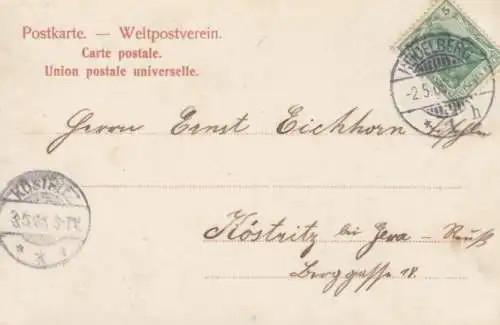 Postkarte. — Weltpostverein.
Carte postale.
Union postale universelle.
5
HEIDELBERG
-2.5.0
* 1 h
Herrn Ernst Eichhorn
KÖSTRITZ
3.5.0
* * 1
Köstritz bei Gera - Reuß
Berggasse 18.